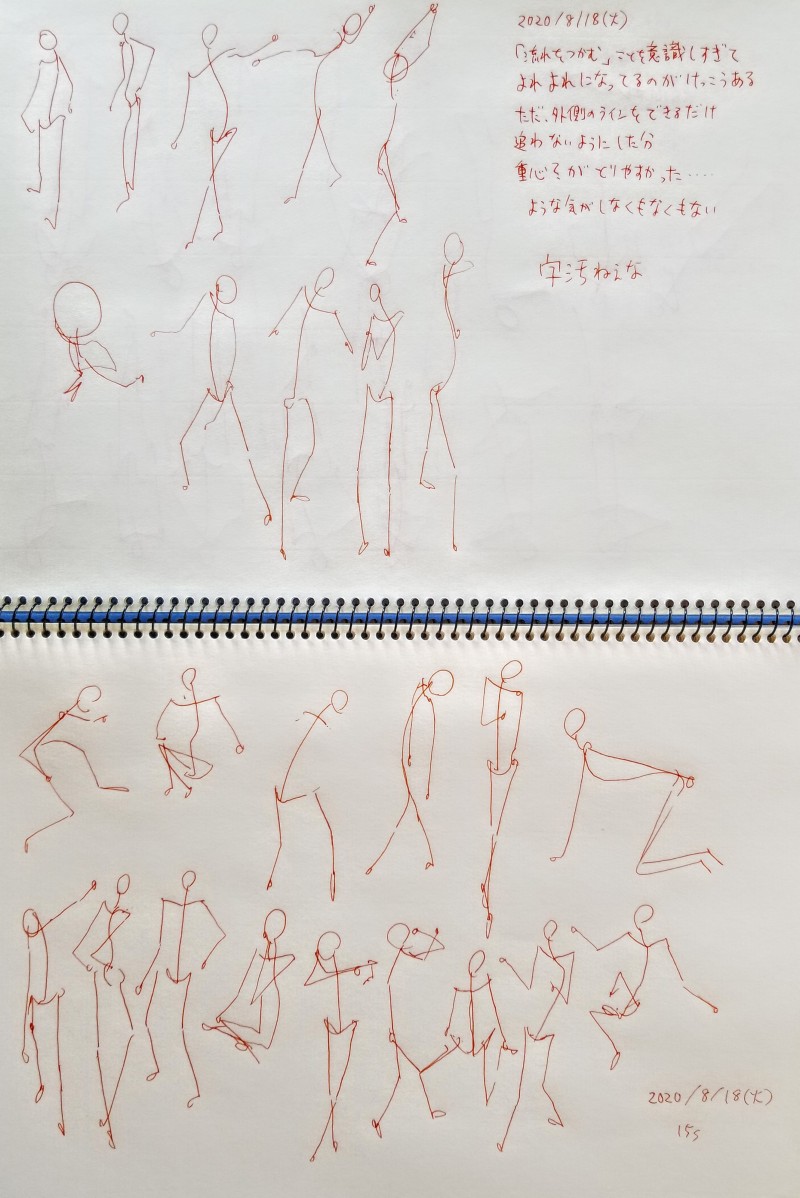 2020/8/18(火)
「流れをつかむ」ことを意識しすぎて
よれよれになってるのがけっこうある
ただ、外側のラインをできるだけ
追わないようにした分
重心そがとりやすかった....
ような気がしなくもなくもない
字汚ねえな
2020/8/18(火)
15s